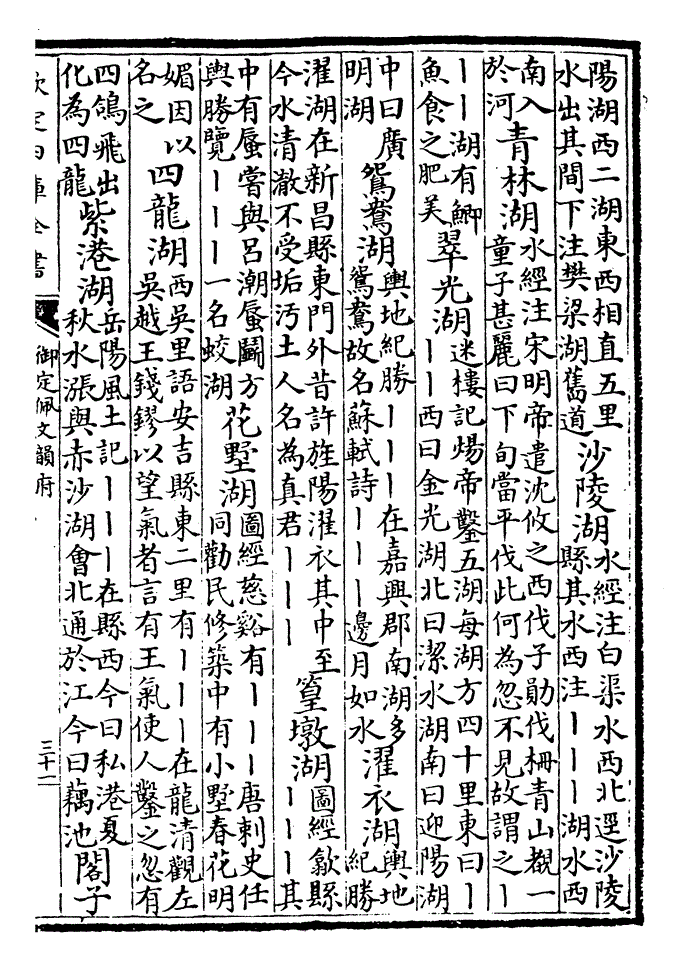 陽湖西二湖東西相直五里水出其間下注樊梁湖舊道沙陵湖水經注白渠水西北逕沙陵縣其水西注｜｜｜湖水西
南入於河青林湖水經注宋明帝遣沈攸之西伐子勛伐柵青山覩一童子甚麗曰下旬當平伐此何為忽不見故謂之｜
｜｜湖有鯽魚食之肥美翠光湖迷樓記煬帝鑿五湖每湖方四十里東曰｜｜｜西曰金光湖北曰潔水湖南曰迎陽湖
中曰廣明湖鴛鴦湖輿地紀勝｜｜｜在嘉興郡南湖多鴛鴦故名蘇軾詩｜｜｜邊月如水濯衣湖輿地紀勝
濯湖在新昌縣東門外昔許旌陽濯衣其中至今水清澈不受垢污土人名為真君｜｜｜篁墩湖圖經歙縣｜｜｜其
中有蜃嘗與呂潮蜃鬭方輿勝覽｜｜｜一名蛟湖花墅湖圖經慈谿有｜｜｜唐刺史任同勸民修築中有小墅春花明
媚因以名之四龍湖西吳里語安吉縣東二里有｜｜｜在龍清觀左吳越王錢鏐以望氣者言有王氣使人鑿之忽有
四鴿飛出化為四龍紫港湖岳陽風土記｜｜｜在縣西今曰私港夏秋水漲與赤沙湖會北通於江今曰藕池閣子
欽定四庫全書
御定佩文韻府
三十一